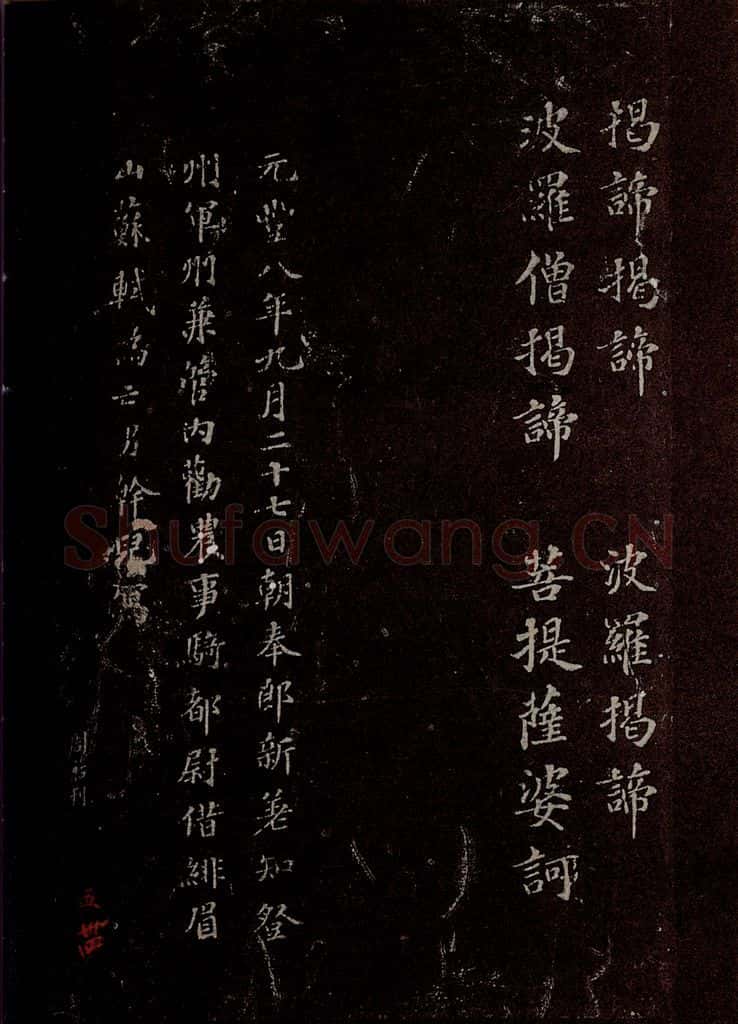 揭諦揭諦　波羅揭諦
波羅僧揭諦　菩提薩婆訶
元豐八年九月二十七日朝奉郎新差知登
州軍州兼管內勸農事騎都尉借緋眉
山蘇軾為亡
寫
刊
五
Shufawang.CN